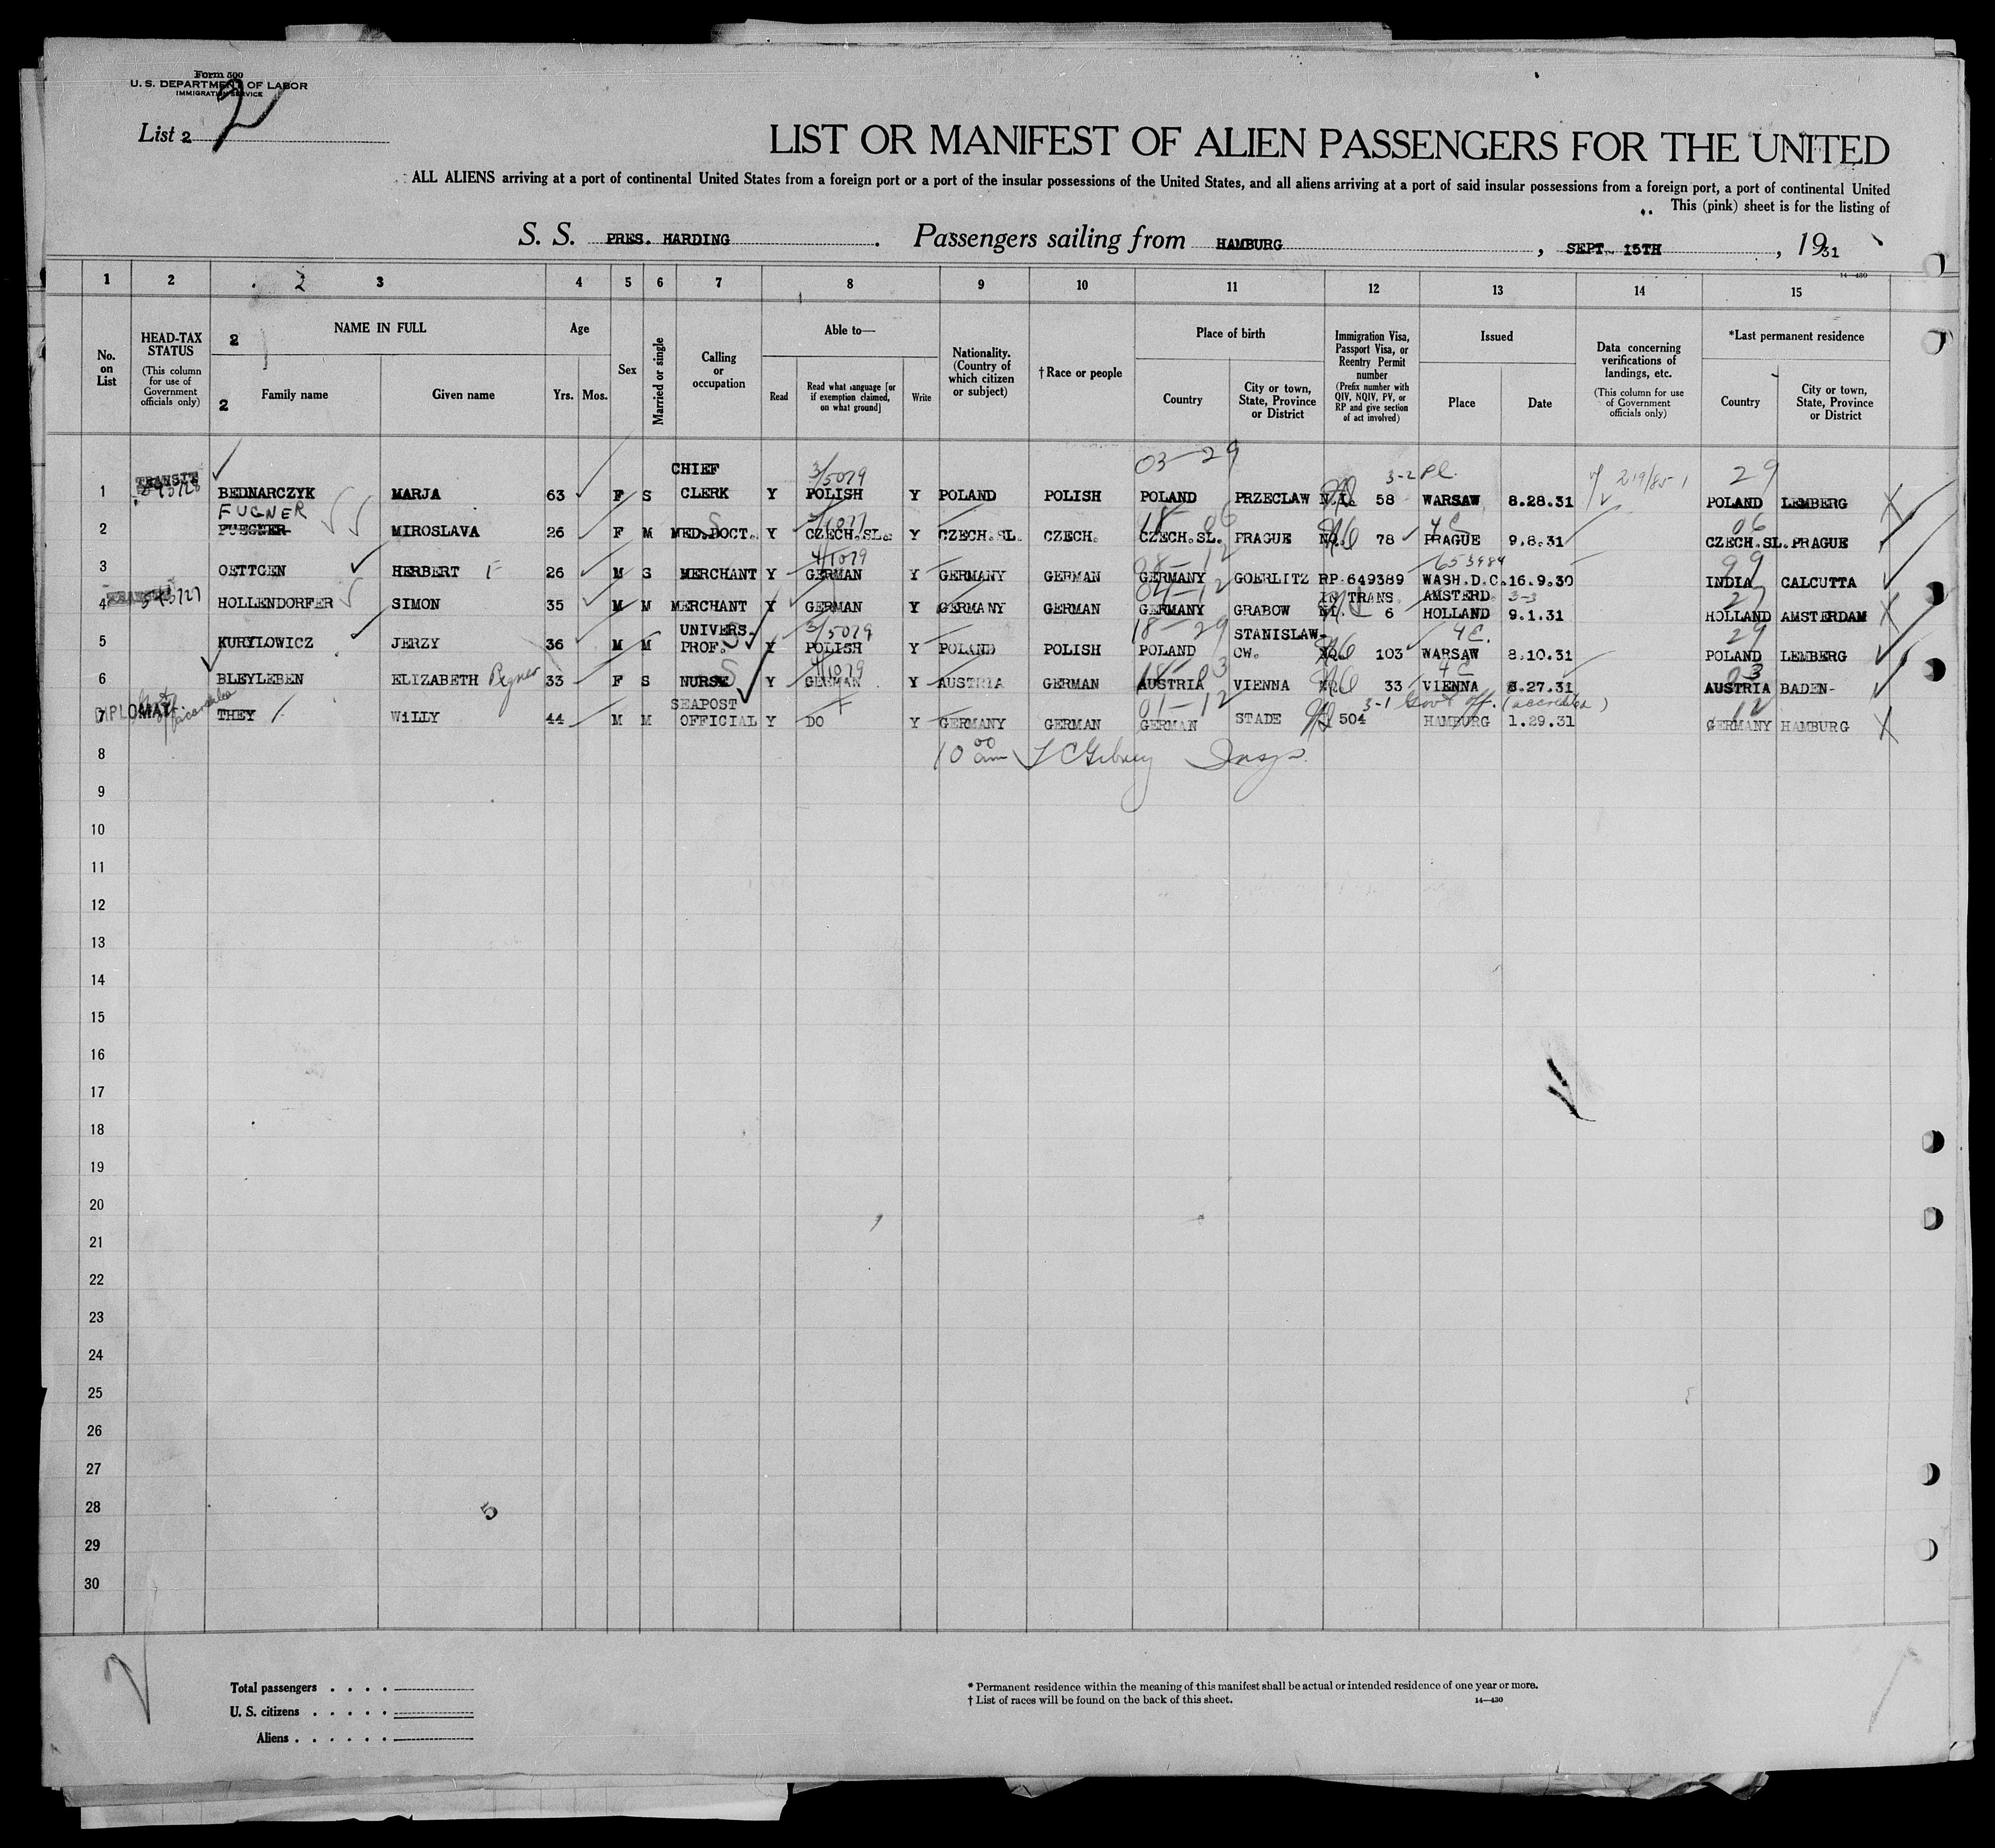 Form 500
U. S. DEPARTMENT OF LABOR
IMMIGRATION SERVICE
List 2 2
LIST OR MANIFEST OF ALIEN PASSENGERS FOR THE UNITED
ALL ALIENS arriving at a port of continental United States from a foreign port or a port of the insular possessions of the United States, and all aliens arriving at a port of said insular possessions from a foreign port, a port of continental United
This (pink) sheet is for the listing of
S. S. PRES. HARDING. Passengers sailing from HAMBURG, SEPT. 15TH, 1931
14—430
1 2 2 3 4 5 6 7 8 9 10 11 12 13 14 15
No. on List
HEAD-TAX STATUS (This column for use of Government officials only)
2 NAME IN FULL
2 Family name Given name
Age Yrs. Mos.
Sex
Married or single
Calling or occupation
Able to—
Read Read what language [or if exemption claimed, on what ground] Write
Nationality. (Country of which citizen or subject)
† Race or people
Place of birth
Country City or town, State, Province or District
Immigration Visa, Passport Visa, or Reentry Permit number (Prefix number with QIV, NQIV, PV, or RP and give section of act involved)
Issued
Place Date
Data concerning verifications of landings, etc. (This column for use of Government officials only)
*Last permanent residence
Country City or town, State, Province or District
03-29
CHIEF 3/5079 3-2 Pl. 29
TRANSIT
1 BEDNARCZYK MARJA 63 F S CLERK Y POLISH Y POLAND POLISH POLAND PRZECLAW N.I. 58 WARSAW 8.28.31 POLAND LEMBERG
FUGNER 18 06 4E 06
2 FUEGNER MIROSLAVA 26 F M MED.DOCT. Y CZECH.SL. Y CZECH.SL. CZECH. CZECH.SL. PRAGUE NQ. 78 PRAGUE 9.8.31 CZECH.SL. PRAGUE
4/1079 12 653984 99
3 OETTGEN HERBERT F 26 M S MERCHANT Y GERMAN Y GERMANY GERMAN GERMANY GOERLITZ RP 649389 WASH.D.C. 16.9.30 INDIA CALCUTTA
543727 04-12 IN TRANS AMSTERD 3-3 27
4 HOLLENDORFER SIMON 35 M M MERCHANT Y GERMAN Y GERMANY GERMAN GERMANY GRABOW NI. 6 HOLLAND 9.1.31 HOLLAND AMSTERDAM
UNIVERS. S 3/5079 18-29 STANISLAW- 4E. 29
5 KURYLOWICZ JERZY 36 M M PROF. Y POLISH Y POLAND POLISH POLAND OW. NQ. 103 WARSAW 8.10.31 POLAND LEMBERG
S 4/1079 18-03 4E 03
6 BLEYLEBEN ELIZABETH 33 F S NURSE Y GERMAN Y AUSTRIA GERMAN AUSTRIA VIENNA NQ. 33 VIENNA 8.27.31 AUSTRIA BADEN-
SEAPOST 01-12 3-1 Govt off. (accredited) 12
DIPLOMAT.
7 THEY WiLLY 44 M M OFFICIAL Y DO Y GERMANY GERMAN GERMAN STADE 504 HAMBURG 1.29.31 GERMANY HAMBURG
8 10 00 am
9
10
11
12
13
14
15
16
17
18
19
20
21
22
23
24
25
26
27
28
5
29
30
Total passengers . . . .
U. S. citizens . . . . .
Aliens . . . . . .
* Permanent residence within the meaning of this manifest shall be actual or intended residence of one year or more.
† List of races will be found on the back of this sheet. 14—430